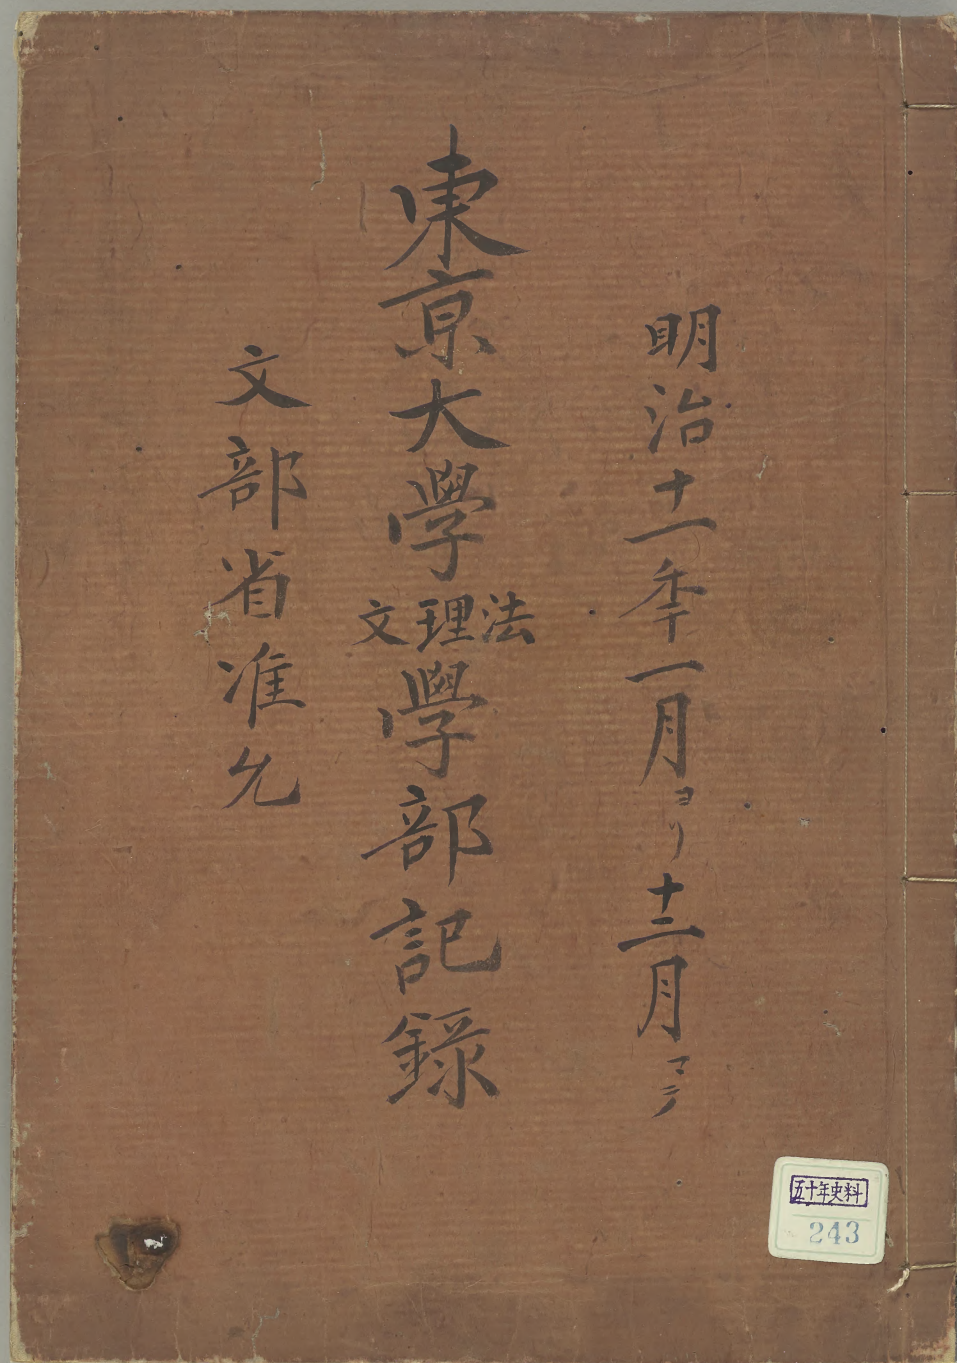 明治十一季一月ヨリ十二月マテ
東京大學法理文學部記録
文部省准允
五十年史料
243